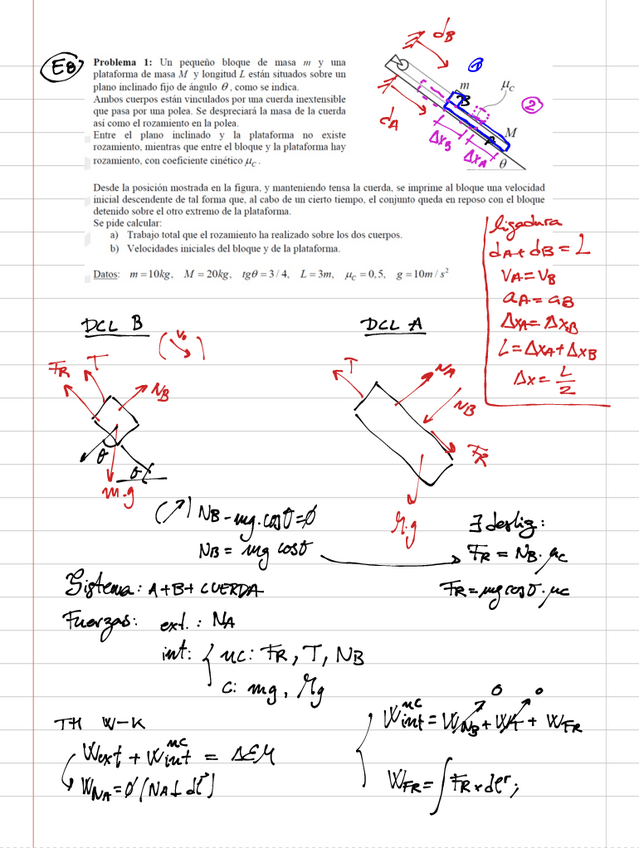 E8
Problema 1: Un pequeño bloque de masa m y una
plataforma de masa M y longitud L están situados sobre un
plano inclinado fijo de ángulo θ, como se indica.
Ambos cuerpos están vinculados por una cuerda inextensible
que pasa por una polea. Se despreciará la masa de la cuerda
así como el rozamiento en la polea.
Entre el plano inclinado y la plataforma no existe
rozamiento, mientras que entre el bloque y la plataforma hay
rozamiento, con coeficiente cinético μC.
dB
1
m
μC
B
2
dA
A
M
ΔxB
ΔxA
θ
Desde la posición mostrada en la figura, y manteniendo tensa la cuerda, se imprime al bloque una velocidad
inicial descendente de tal forma que, al cabo de un cierto tiempo, el conjunto queda en reposo con el bloque
detenido sobre el otro extremo de la plataforma.
Se pide calcular:
a) Trabajo total que el rozamiento ha realizado sobre los dos cuerpos.
b) Velocidades iniciales del bloque y de la plataforma.
Datos: m=10kg, M=20kg, tgθ=3/4, L=3m, μC=0,5, g=10m/s²
ligadura
dA+dB=L
VA=VB
aA=aB
ΔxA=ΔxB
L=ΔxA+ΔxB
Δx=L/2
DCL B
(V0)
FR T
NB
θ
θ
m.g
DCL A
T
NA
NB
FR
M.g
(↗) NB-mg.cosθ=0
NB = mg cosθ
∃ desliz:
FR = NB.μc
FR=mg cosθ.μc
Sistema: A+B+CUERDA
Fuerzas: ext.: NA
int: { nc: FR, T, NB
c: mg, Mg
TH W-K
Wext + Wint nc = ΔEM
WNA=0 (NA⊥dr)
Wint nc = WNB + WT + WFR
0 0
WFR=∫FR×dr;